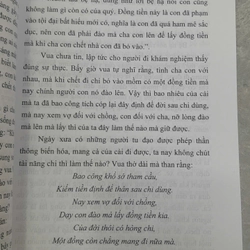 không làm gì còn có của quý. Đồng tiền này là con đã phạm
tội đại bất hiếu mới có, nghĩa là con đã quá ham mê sắc
dục, nên con đã phải đào mả cha con lên để lấy đồng tiền
mà khi cha con chết nhà con đã bỏ vào.".
Vua chưa tin, lập tức cho người đi khám nghiệm thấy
đúng sự thực. Bấy giờ vua tự nghĩ rằng, tình cha con với
nhau, mà khi chết đi chỉ bỏ vào mồm có một đồng tiền mà
nay người con lại đào mả lên lấy. Vậy thì bao nhiêu của cải
mà ta đã bao công tích cóp lại đây định để đời sau chi dùng,
mà nay xem vợ đối với chồng, con đối với cha, nỡ lòng đào
mả lên mà lấy thì của ta đây làm thế nào mà giữ được.
Ngày xưa có những người tu đạo được phép thần
thông biến hóa, mang của cải đi được, ta nay không chút
tài năng chi thì làm thế nào? Vua thở dài mà than rằng:
Bao công khổ sở tham cầu,
Kiếm tiền định để thân sau chi dùng.
Nay xem vợ đối với chồng,
Dạy con đào mả lấy đồng tiền kia,
Của đời thôi có hòng chi,
Một đồng còn chẳng mang đi nữa mà.